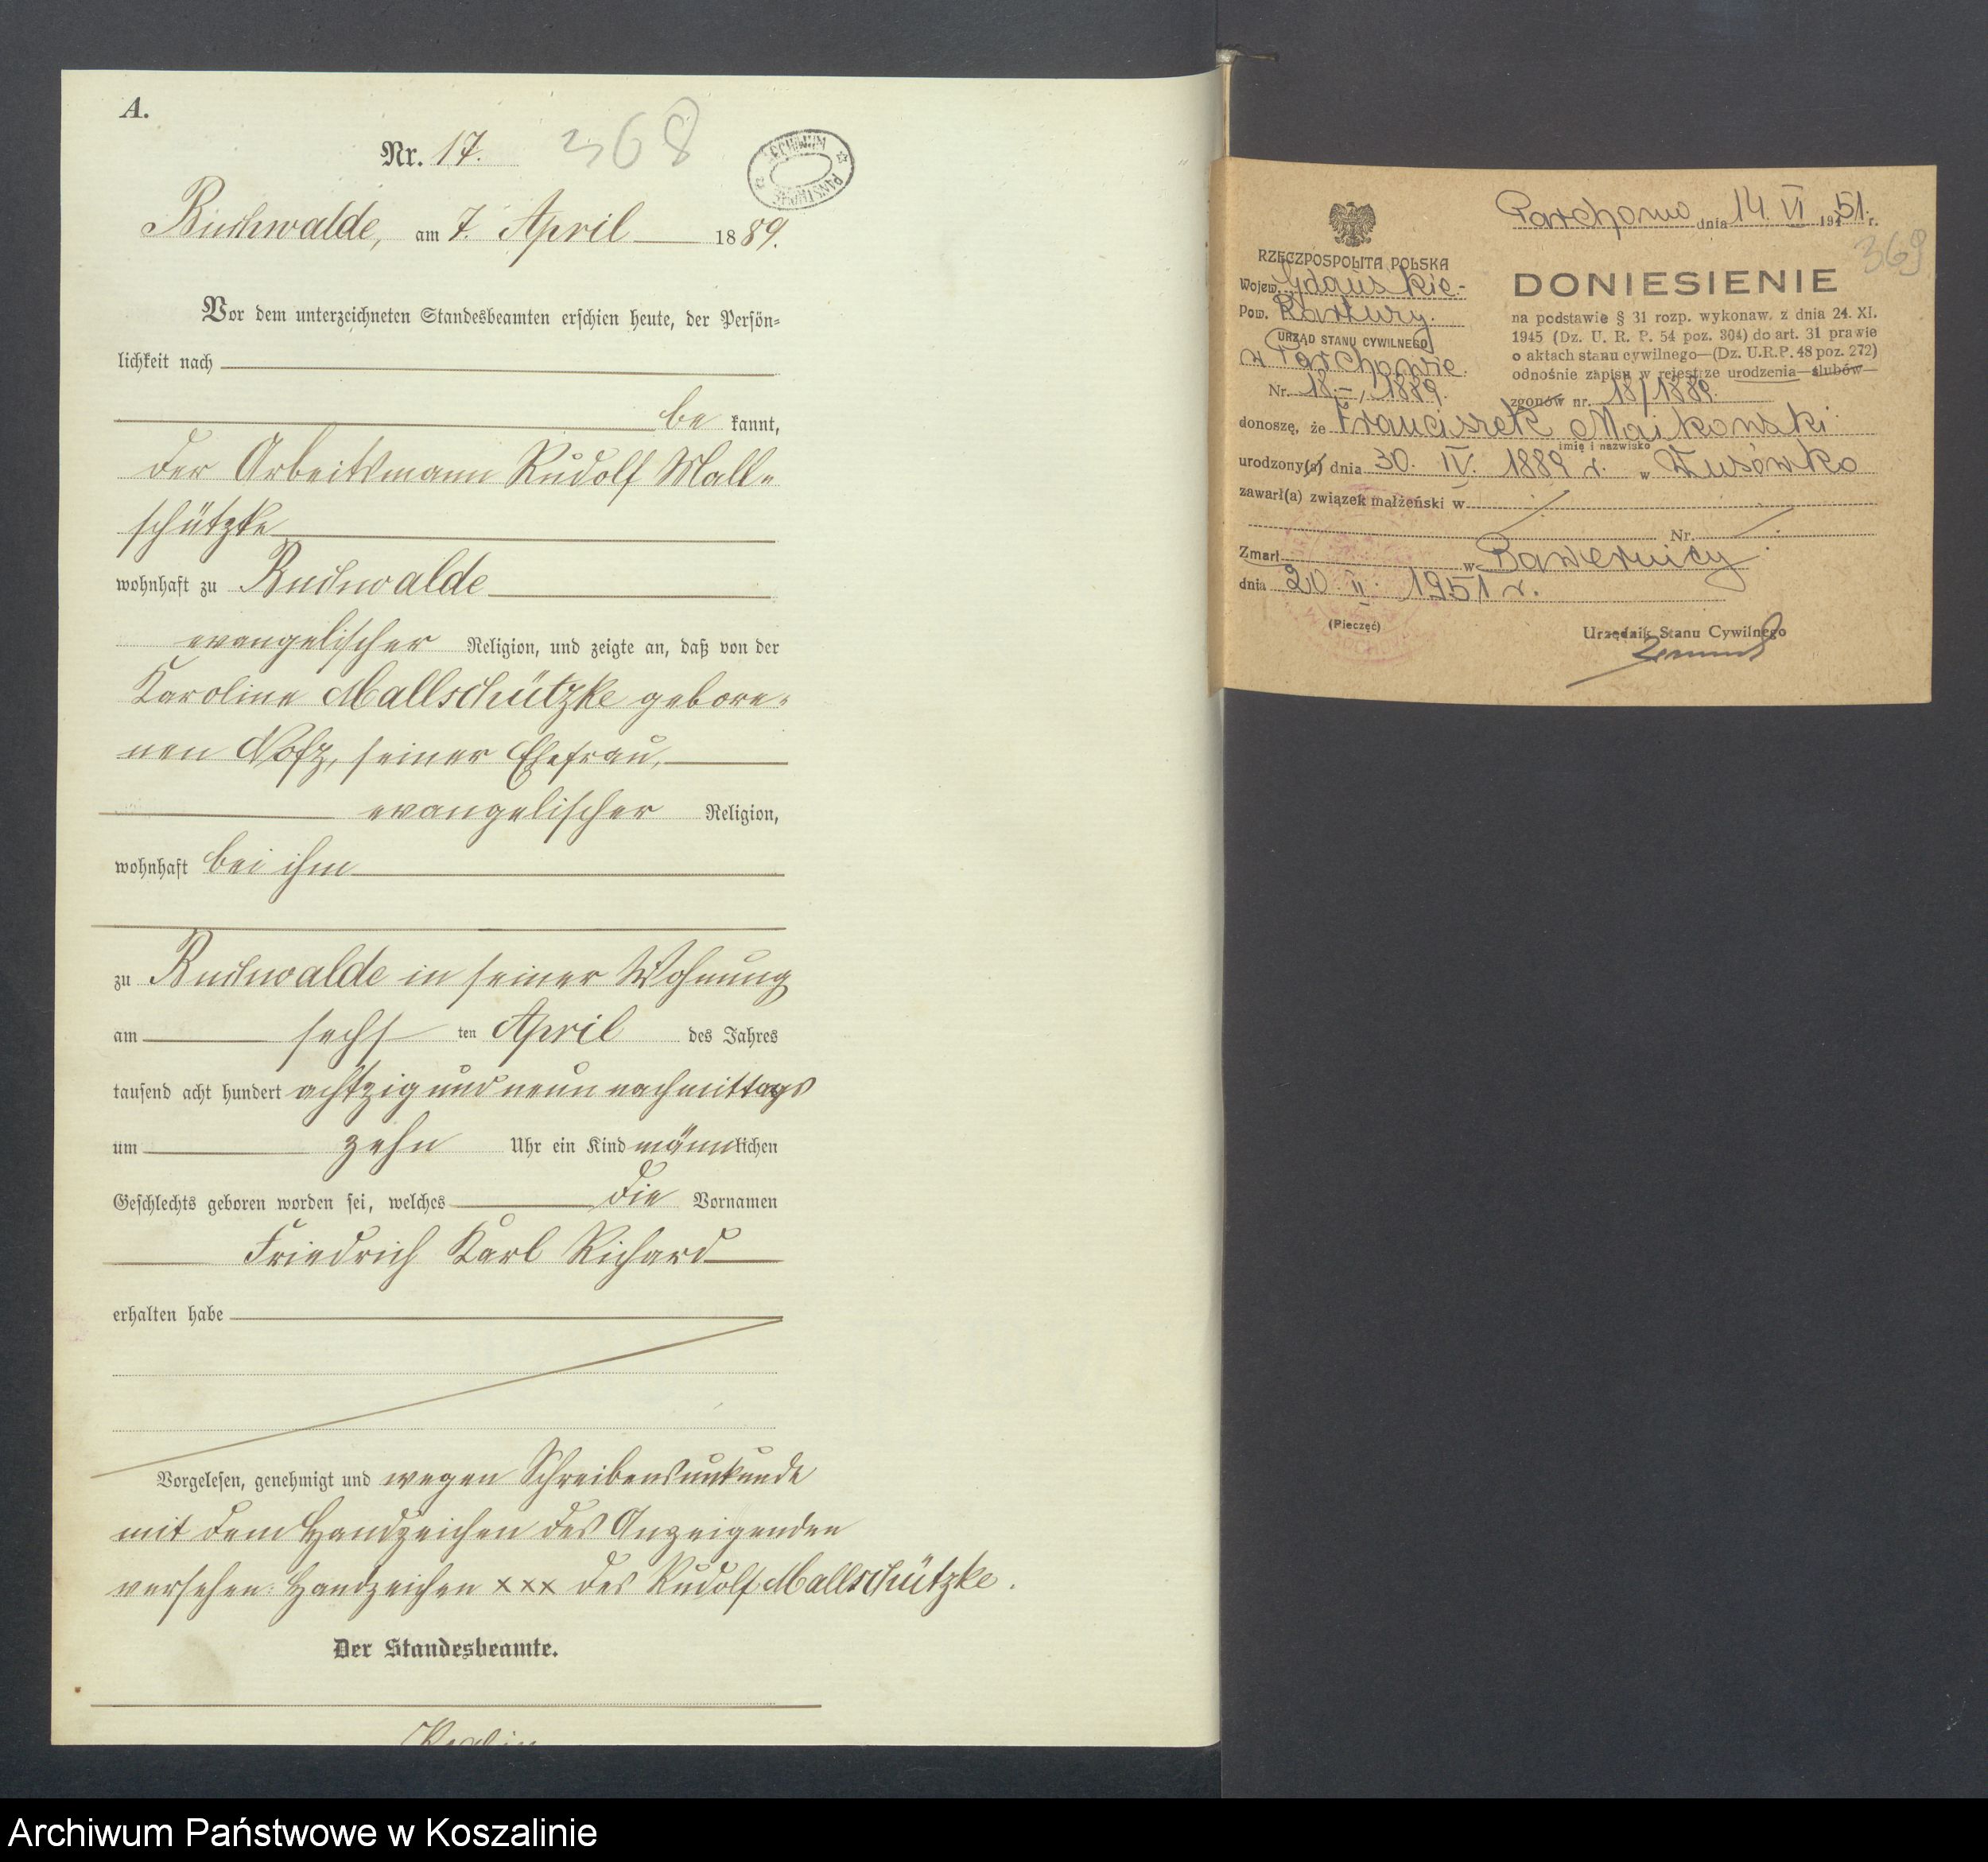 A.
Nr. 17. 368
ARCHIWUM PAŃSTWOWE
Buchwalde, am 7. April 1889.
Vor dem unterzeichneten Standesbeamten erschien heute, der Persön=
lichkeit nach
be kannt,
der Arbeitsmann Rudolf Mall=
schützke
wohnhaft zu Buchwalde
evangelischer Religion, und zeigte an, daß von der
Karoline Mallschützke gebore=
nen Notz, seiner Ehefrau,
evangelischer Religion,
wohnhaft bei ihm
zu Buchwalde in seiner Wohnung
am sechs ten April des Jahres
tausend acht hundert achtzig und neun nachmittags
um zehn Uhr ein Kind männlichen
Geschlechts geboren worden sei, welches die Vornamen
Friedrich Karl Richard
erhalten habe
Vorgelesen, genehmigt und wegen Schreibensunkunde
mit dem Handzeichen des Anzeigenden
versehen: Handzeichen xxx des Rudolf Mallschützke.
Der Standesbeamte.
Parchowo dnia 14. VI 1951. r.
369
RZECZPOSPOLITA POLSKA
Wojew. Gdańskie.-
Pow. Kartuzy.
URZĄD STANU CYWILNEGO
w Parchowie.
Nr. 18.-, 1889.
DONIESIENIE
na podstawie § 31 rozp. wykonaw. z dnia 24. XI.
1945 (Dz. U. R. P. 54 poz. 304) do art. 31 prawie
o aktach stanu cywilnego—(Dz. U.R.P. 48 poz. 272)
odnośnie zapisu w rejestrze urodzenia—ślubów—
zgonów nr. 18/1889.
donoszę, że Franciszek Majkowski
imię i nazwisko
urodzony(a) dnia 30. IV. 1889 r. w Tusówko
zawarł(a) związek małżeński w
Nr.
Zmarł w Bawernicy
dnia 20 II 1951 r.
(Pieczęć)
Urzędnik Stanu Cywilnego
Archiwum Państwowe w Koszalinie